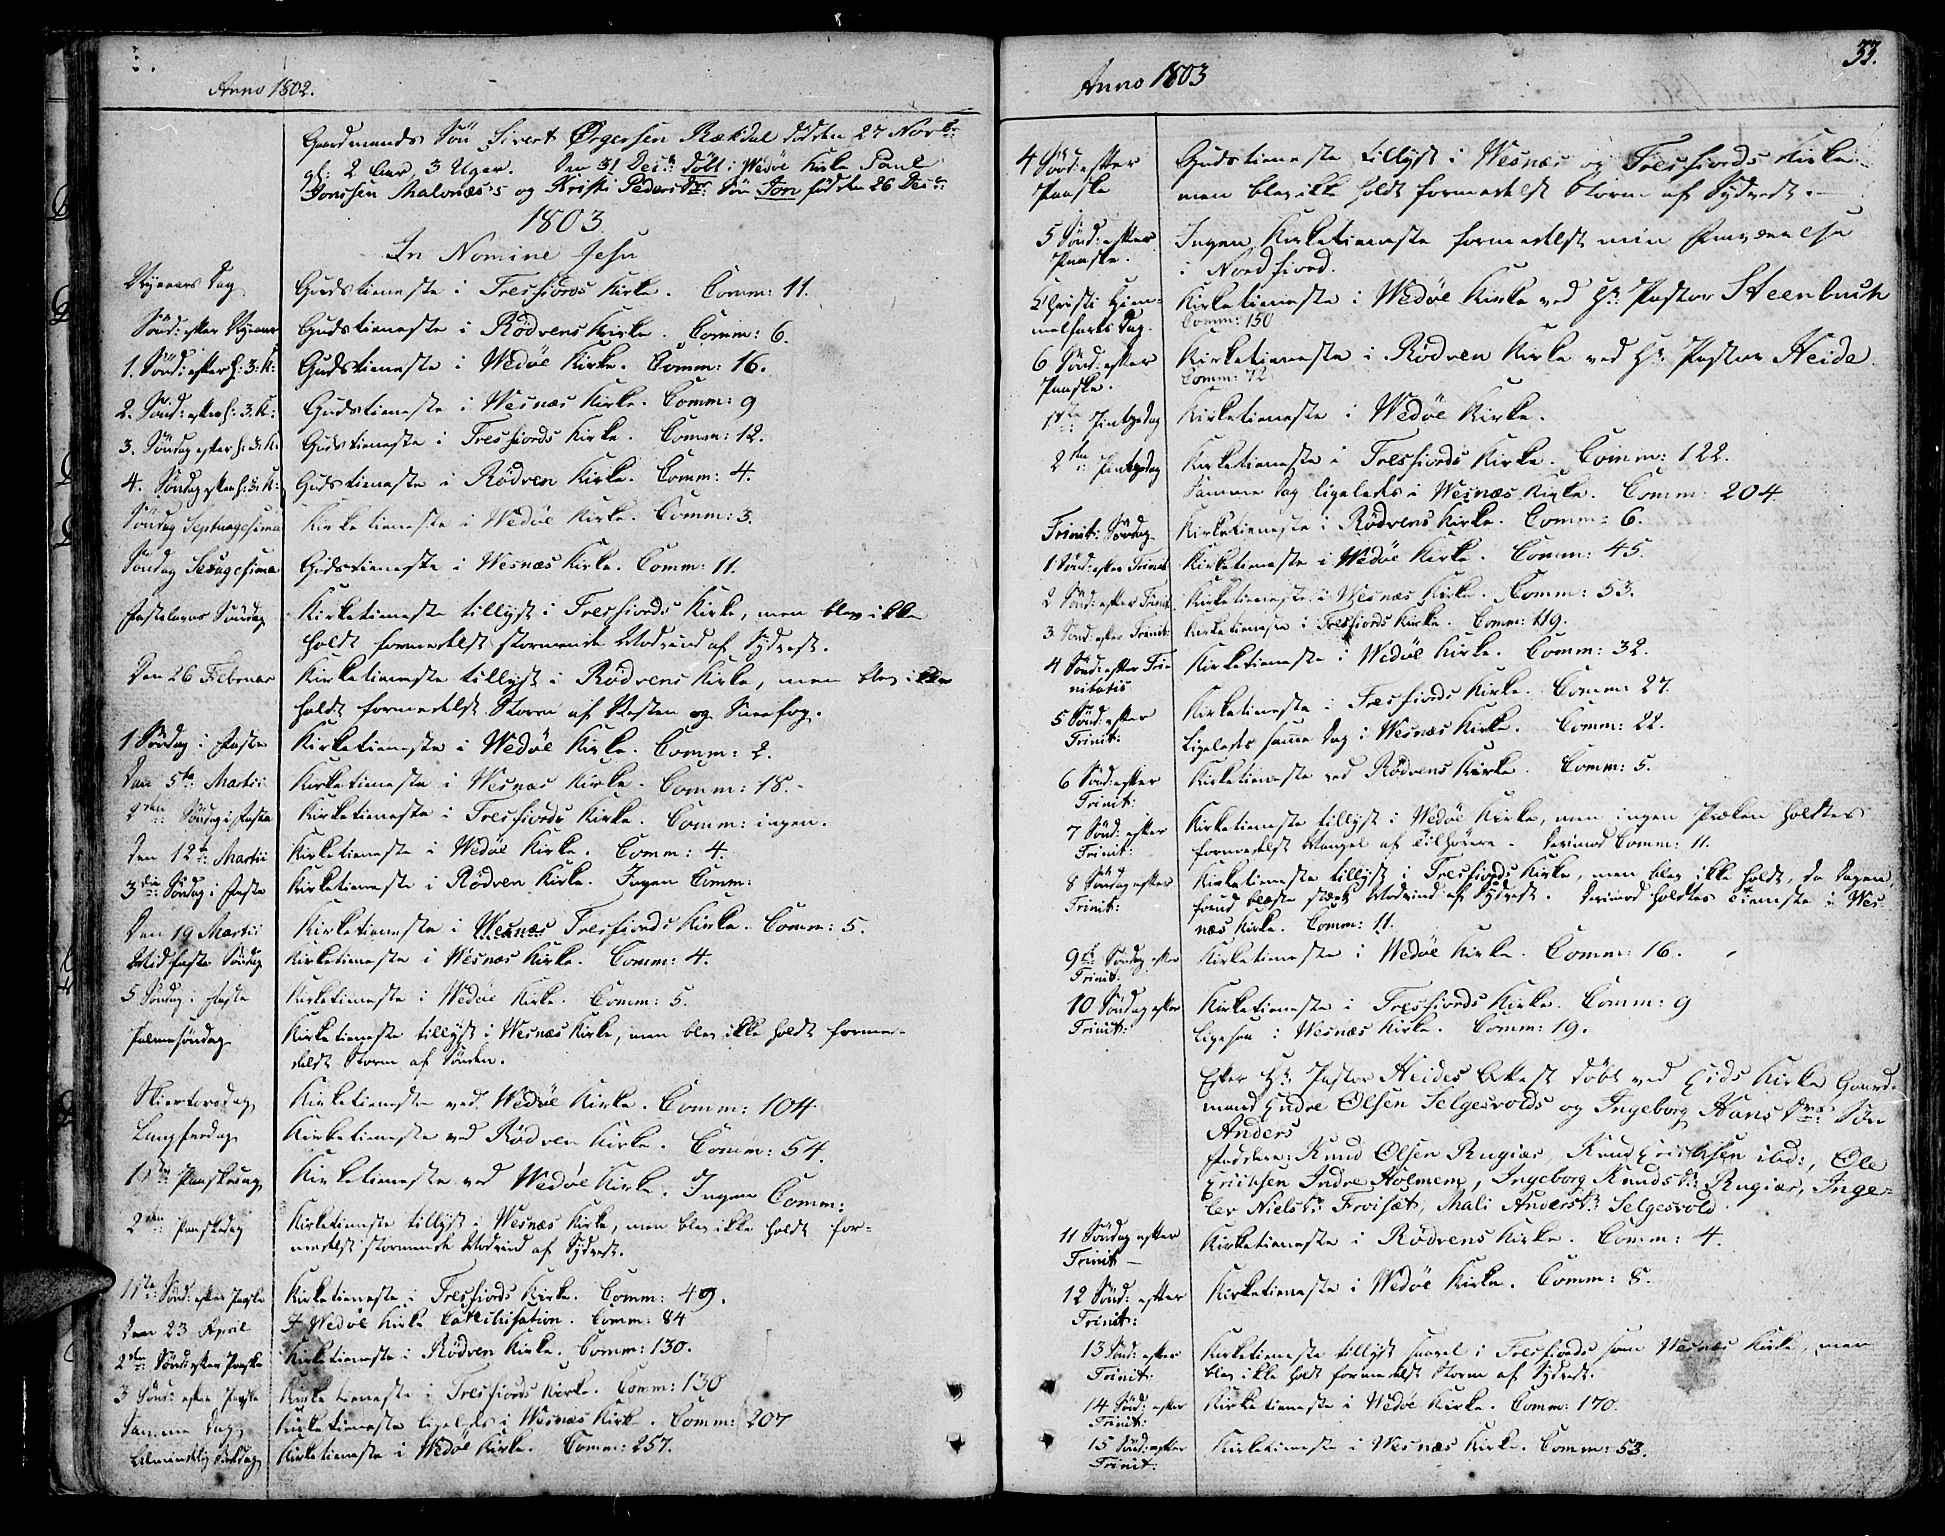 Anno 1802.
Gaardmands Søn Sivert Ørgersen Rækdal død den 27 Novbr:
gl: 2 Aar, 3 Uger. Den 31 Decbr: døbt i Wedøe Kirke Poul
Jonssen Malonæs's og Kristi Pedersdtr: Søn Jon fød den 26 Decbr:
1803
In Nomine Jesu
Nyeaars Dag Gudstieneste i Tresfiords Kirke. Comm: 11.
Sönd: efter Nyeaar Gudstieneste i Rödvens Kirke. Comm: 6.
1. Sönd: efter h: 3: K: Gudstieneste i Wedöe Kirke. Comm: 16.
2. Sönd: efter h: 3: K: Gudstieneste i Wesnæs Kirke. Comm: 9
3. Söndag efter h: 3: K: Gudstieneste i Tresfiords Kirke. Comm: 12.
4. Söndag efter h: 3: K: Gudstieneste i Rödven Kirke. Comm: 4.
Söndag Septuagesima Kirketieneste i Wedöe Kirke. Comm: 3.
Söndag Sexagesima Gudstieneste i Wesnæs Kirke. Comm: 11.
Fastelavns Söndag Kirketieneste tillyst i Tresfiords Kirke, men blev ikke
holdt formedelst stormende Modvind af Sydvest.
Den 26 Februar Kirketieneste tillyst i Rödvens Kirke, men blev ikke
holdt formedelst Storm af Vesten og Sneefog.
1 Söndag i Faste Kirketieneste i Wedöe Kirke. Comm: 2.
Den 5te Martii Kirketieneste i Wesnæs Kirke. Comm: 18.
2den Söndag i Faste Kirketieneste i Tresfiords Kirke. Comm: ingen.
Den 12te: Martii Kirketieneste i Wedöe Kirke. Comm: 4.
3die Söndag i Faste Kirketieneste i Rödven Kirke. Ingen Comm:
Den 19 Martii Kirketieneste i Wesnæs Tresfiords Kirke. Comm: 5.
Midfaste Söndag Kirketieneste i Wesnæs Kirke. Comm: 4.
5 Söndag i Faste Kirketieneste i Wedöe Kirke. Comm: 5.
Palmesöndag Kirketieneste tillyst i Wesnæs Kirke, men blev ikke holdt forme-
delst Storm af Sønden.
Skiertorsdag Kirketieneste ved Wedöe Kirke. Comm: 104.
Langfredag Kirketieneste ved Rödven Kirke. Comm: 54.
1ste Paaskedag Kirketieneste ved Wedöe Kirke. Ingen Comm:
2den Paaskedag Kirketieneste tillyst i Wesnæs Kirke, men blev ikke holdt for-
medelst stormende Modvind af Sydvest.
1ste: Sönd: efter Paaske Kirketieneste i Tresfiords Kirke. Comm: 49.
Den 23 April I Wedöe Kirke Catechisation. Comm: 84
2den: Sönd: efter Paaske Kirketieneste i Rödven Kirke. Comm: 130.
3 Sönd: efter Paaske Kirketieneste i Tresfiords Kirke. Comm: 130
Samme Dag Kirketieneste ligeledes i Wesnæs Kirke. Comm: 207
Almindelig Bededag Kirketieneste i Wedöe Kirke. Comm: 257.
33.
Anno 1803
4 Sönd: efter Paaske Gudstieneste tillyst i Wesnæs og Tresfiords Kirke
men blev ikke holdt formedelst Storm af Sydvest.
5 Sönd: efter Paaske. Ingen Kirketieneste formedelst min Nærværelse
i Nordfiord.
Christi Himmelfarts Dag. Kirketieneste i Wedöe Kirke ved Hr: Pastor Steenbuch
Comm: 150
6 Sönd: efter Paaske. Kirketieneste i Rödven Kirke ved Hr: Pastor Heide
Comm: 72
1ste: Pintzedag Kirketieneste i Wedöe Kirke.
2den: Pintzedag Kirketieneste i Tresfiords Kirke. Comm: 122.
Samme Dag ligeledes i Wesnæs Kirke. Comm: 204.
Trinit: Söndag Kirketieneste i Rödvens Kirke. Comm: 6.
1 Sönd: efter Trinit Kirketieneste i Wedöe Kirke. Comm: 45.
2 Sönd: efter Trinit Kirketieneste i Wesnæs Kirke. Comm: 53.
3 Sönd: efter Trinit: Kirketieneste i Tresfiords Kirke. Comm: 119.
4 Sönd: efter Trinitatis Kirketieneste i Wedöe Kirke. Comm: 32.
5 Sönd: efter Trinit: Kirketieneste i Tresfiords Kirke. Comm: 27.
Ligeledes samme Dag i Wesnæs Kirke. Comm: 22.
6 Sönd: efter Trinit: Kirketieneste ved Rödvens Kirke. Comm: 5.
7 Sönd: efter Trinit: Kirketieneste tillyst i Wedöe Kirke, men ingen Præken holdtes
formedelst Mangel af Tilhörere. Derimod Comm: 11.
8 Söndag efter Trinit: Kirketieneste tillyst i Tresfiords Kirke, men blev ikke holdt, da Dagen
forud blæste stærk Modvind af Sydvest. Derimod holdtes Tieneste i Wes-
næs Kirke. Comm: 11.
9de Söndag efter Trinit: Kirketieneste i Wedöe Kirke. Comm: 16.
10 Söndag efter Trinit: Kirketieneste i Tresfiords Kirke. Comm: 9
Ligesaa i Wesnæs Kirke. Comm: 19.
Efter Hr: Pastor Heides Attest døbt ved Eids Kirke Gaard-
mand Endre Olsen Selgesvolds og Ingeborg Hansdtrs: Søn
Anders
Faddere: Knud Olsen Rugiær, Knud Erichsen ibid:, Ole
Erichsen Indre Holmem, Ingeborg Knudsdr: Rugiær, Inge-
ler Nielsdr: Froisæt, Mali Andersdr: Selgesvold.
11 Söndag efter Trinit Kirketieneste i Rödvens Kirke. Comm: 4.
12 Sönd: efter Trinit: Kirketieneste i Wedöe Kirke. Comm: 8.
13 Sönd: efter Trinit: Kirketieneste tillyst saavel i Tresfiords som Wesnæs Kirke, men
blev ikke holdt formedelst Storm af Sydvest.
14 Sönd: efter Trinit: Kirketieneste i Wedöe Kirke. Comm: 170.
15 Sönd: efter Trinit: Kirketieneste i Wesnæs Kirke. Comm: 53.